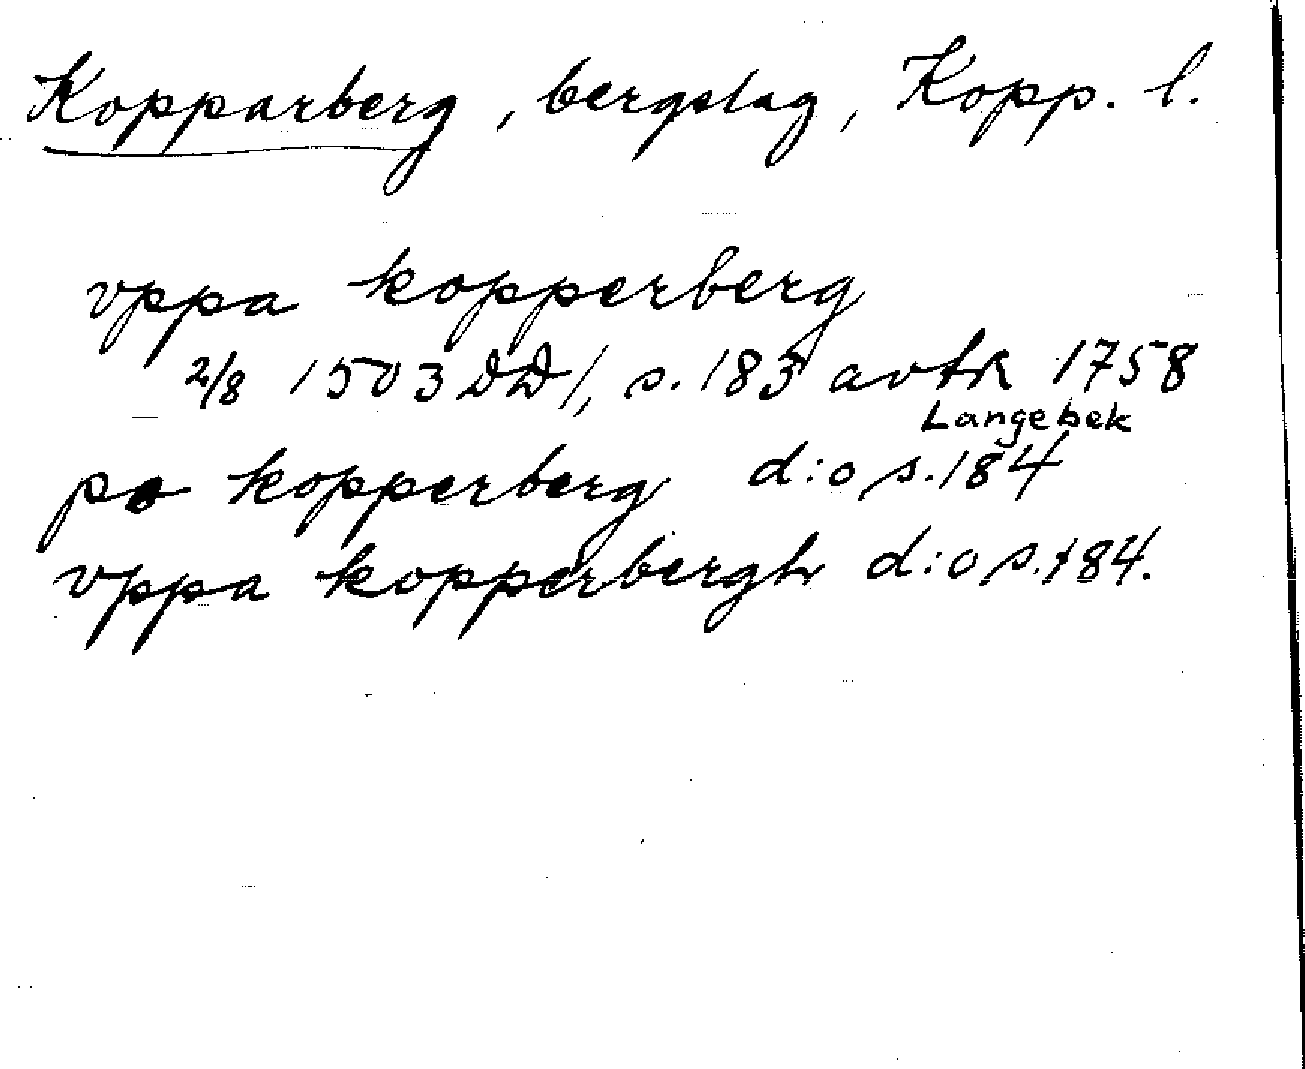 Kopparberg, bergslag, Kopp. l.
vppa kopperberg
2/8 1503 DD 1, s. 183 avskr 1758
Langebek
po kopperberg d:o s. 184
vppa kopperbergh d:o s. 184.